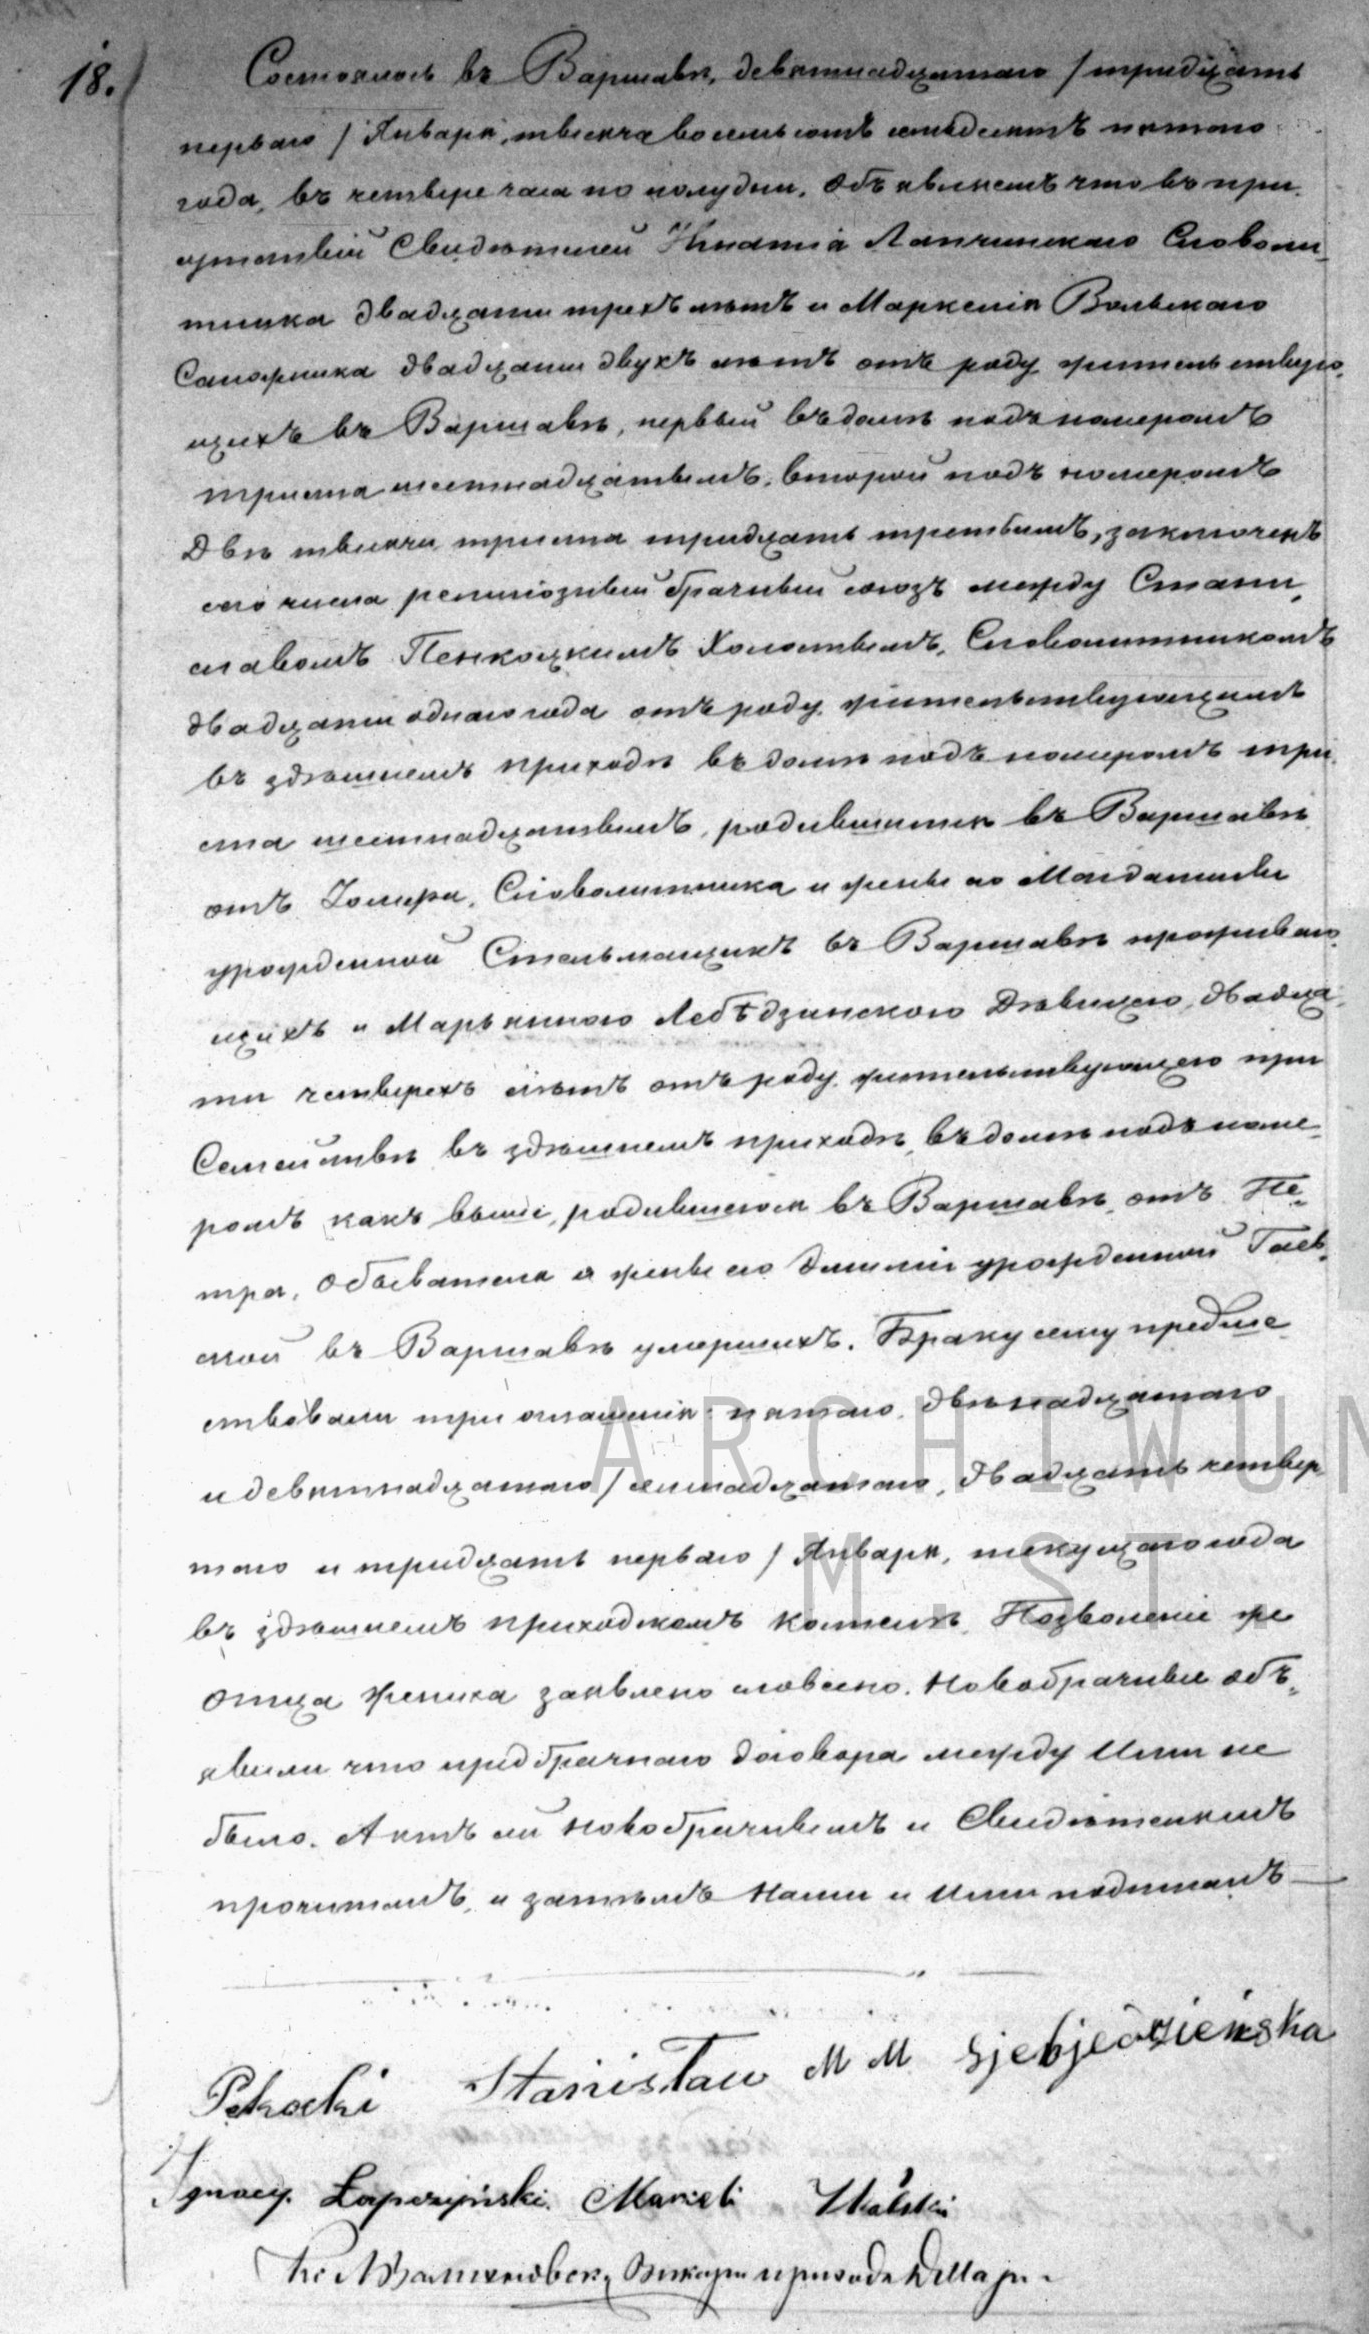 18.
Состоялось въ Варшавѣ, девятнадцатаго / тридцать
перваго / Января, тысяча восемьсотъ семьдесятъ пятаго
года, въ четвере часа по полудни. Объявляемъ что въ при¬
сутствіи Свидѣтелей Игнатія Лапчинскаго Словоли¬
тника двадцати трехъ лѣтъ и Маркелія Вольскаго
Сапожника двадцати двухъ лѣтъ отъ роду жительствую¬
щихъ въ Варшавѣ, первый въ домѣ подъ номеромъ
триста шестнадцатымъ, второй подъ номеромъ
Двѣ тысячи триста тридцать третьимъ, заключенъ
сего числа религіозный брачный союзъ между Стани¬
славомъ Пенкоцкимъ Холостымъ, Словолитникомъ
двадцати одного года отъ роду жительствующимъ
въ здѣшнемъ приходѣ въ домѣ подъ номеромъ три¬
ста шестнадцатымъ, родившимся въ Варшавѣ
отъ Словолитника и жены его Магдалины
урожденной въ Варшавѣ прожива¬ю
щихъ и Марьянною Лебѣдзинскою Дѣвицею, двадца¬
ти четырехъ лѣтъ отъ роду жительствующею при
Семействѣ въ здѣшнемъ приходѣ, въ домѣ подъ номе¬
ромъ какъ выше, родившеюся въ Варшавѣ отъ Пе¬
тра, Обывателя и жены его Эмиліи урожденной
въ Варшавѣ умершихъ. Браку сему предше¬
ствовали три оглашенія: пятаго, двѣнадцатаго
и девятнадцатаго / семнадцатаго, двадцать четвер¬
таго и тридцать перваго / Января, текущаго года
въ здѣшнемъ приходскомъ Костелѣ. Позволеніе же
отца жениха заявлено словесно. Новобрачные объ¬
явили что предбрачнаго договора между Ими не
было. Актъ сей Новобрачнымъ и Свидѣтелямъ
прочитанъ, и затѣмъ Нами и Ими подписанъ
Pękacki Stanisław M M Ljebjedzieńska
Ignacy Łapczyński. Marceli Wolski
Кс. Викарій прихода
ARCHIWUM
M. ST.